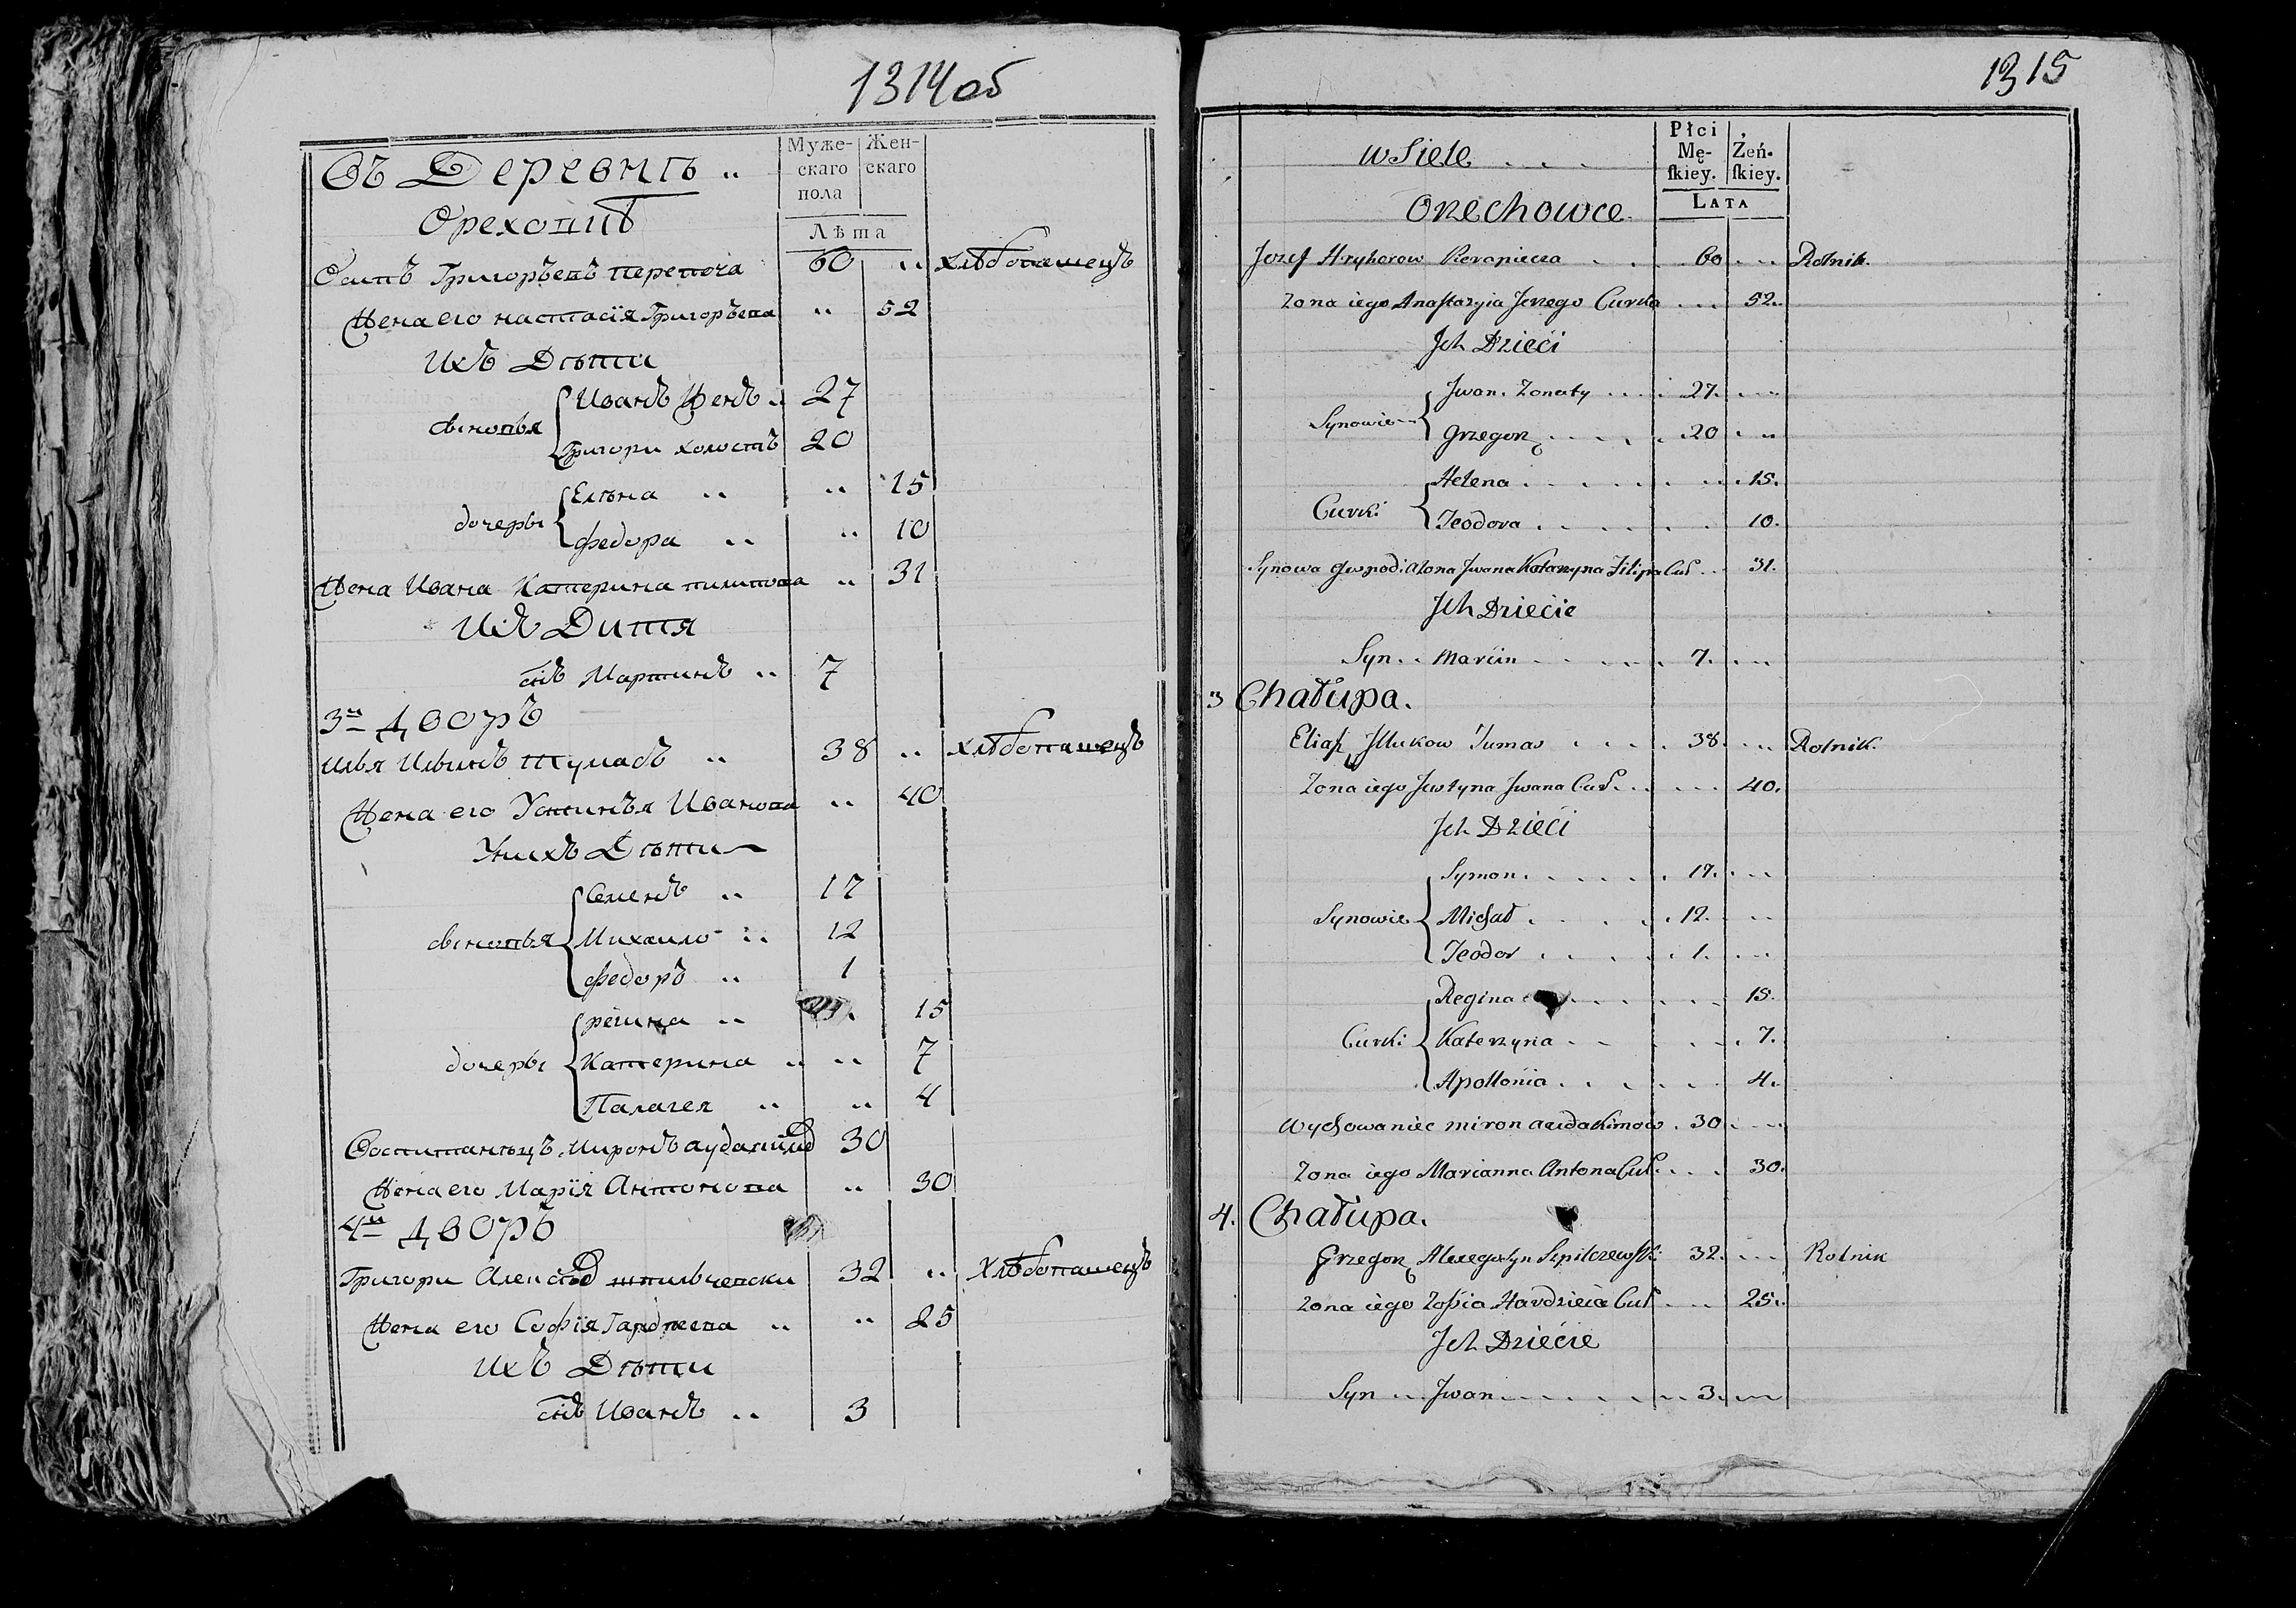 1314об
Въ Деревнѣ
Муже-
скаго
пола
Жен-
скаго
Лѣта
Орехов
Осипъ Григорьевъ перепеча 60 хлѣбопашецъ
Жена его настасія Григорьева 52
Ихъ Дѣти
сыновья
Иванъ Жен. 27
Григори холостъ 20
дочеры
Елѣна 15
федора 10
Жена Ивана Катерина пилипова 31
Их Дитя
снъ Мартинъ 7
3й дворъ
илья Ильинъ 38 хлѣбопашецъ
Жена его Устинья Иванова 40
У них Дѣти
сыновья
Семенъ 17
Михаило 12
федоръ 1
дочеры
регина 15
Катерина 7
Палагея 4
Воспитанецъ Миронъ 30
Жена его Марія Антонова 30
4й дворъ
Григори шпильчевски 32 хлѣбопашецъ
Жена его Софія 25
Ихъ Дѣти
снъ Иванъ 3
1315
w Siele
Płci
Mę-
skiey.
Żeń-
skiey.
Lata
Orzechowce
Jozef Hryhorow 60 Rolnik.
Zona iego Anastazyia Jerzego Curka 52.
Jch Dzieci
Synowie
Jwan. Zonaty 27.
Grzegorz 20
Curki
Helena 15.
Teodora 10.
Synowa Zona Jwana Katarzyna Filipa Cur. 31.
Jch Dziecie
Syn Marcin 7.
3 Chałupa.
Eliasz Jllukow 38. Rolnik.
Zona iego Justyna Jwana Cur. 40.
Jch Dzieci
Synowie
Symon 17.
Michał 12.
Teodor 1.
Curki
Regina 15.
Katerzyna 7.
Apollonia 4.
Wychowaniec miron awdakimow 30
Zona iego Marianna Antona Cur. 30.
4. Chałupa.
Grzegorz Szpilczewski 32. Rolnik
Zona iego Zofia Cur. 25.
Jch Dziecie
Syn Jwan 3.